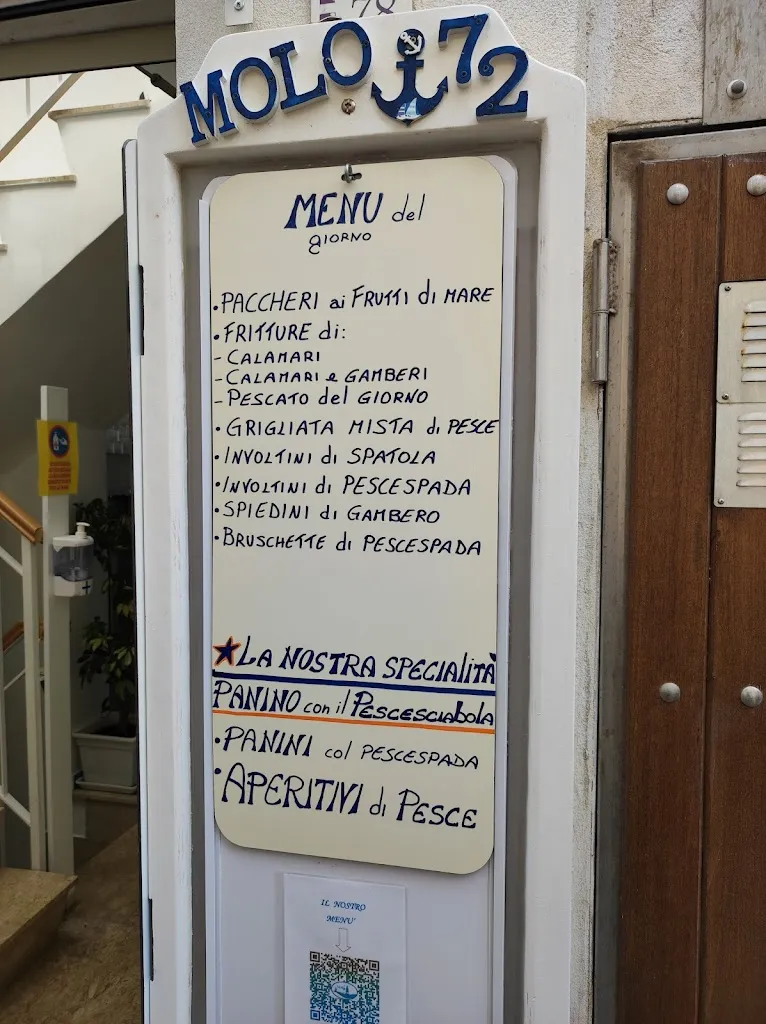 78
MOLO 72
MENU del
GIORNO
•PACCHERI ai FRUTTI di MARE
•FRITTURE di:
- CALAMARI
- CALAMARI e GAMBERI
- PESCATO del GIORNO
•GRIGLIATA MISTA di PESCE
•INVOLTINI di SPATOLA
•INVOLTINI di PESCESPADA
•SPIEDINI di GAMBERO
•BRUSCHETTE di PESCESPADA
★LA NOSTRA SPECIALITÀ
PANINO con il PESCESCIABOLA
•PANINI col PESCESPADA
•APERITIVI di PESCE
IL NOSTRO
MENU'